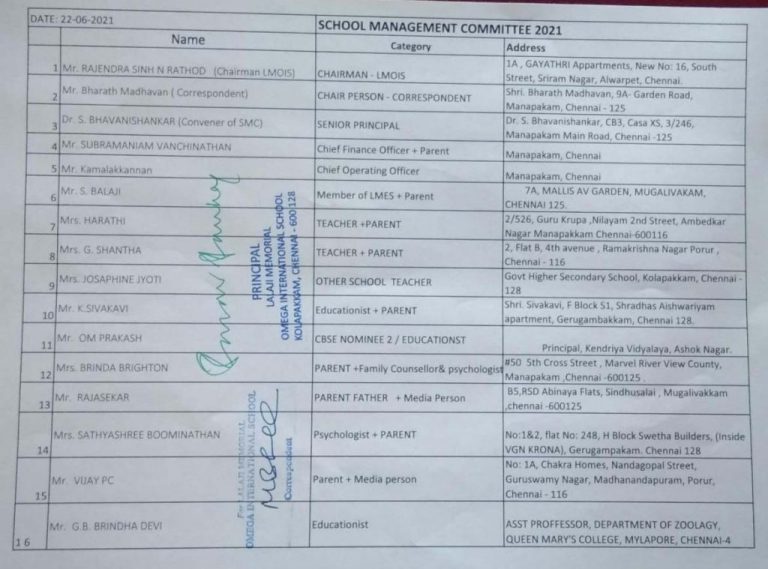 DATE: 22-06-2021
SCHOOL MANAGEMENT COMMITTEE 2021
Name Category Address
1 Mr. RAJENDRA SINH N RATHOD (Chairman LMOIS) CHAIRMAN - LMOIS 1A , GAYATHRI Appartments, New No: 16, South
Street, Sriram Nagar, Alwarpet, Chennai.
2 Mr. Bharath Madhavan ( Correspondent) CHAIR PERSON - CORRESPONDENT Shri. Bharath Madhavan, 9A- Garden Road,
Manapakam, Chennai - 125
3 Dr. S. BHAVANISHANKAR (Convener of SMC) SENIOR PRINCIPAL Dr. S. Bhavanishankar, CB3, Casa XS, 3/246,
Manapakam Main Road, Chennai -125
4 Mr. SUBRAMANIAM VANCHINATHAN Chief Finance Officer + Parent Manapakam, Chennai
5 Mr. Kamalakkannan Chief Operating Officer Manapakam, Chennai
6 Mr. S. BALAJI Member of LMES + Parent 7A, MALLIS AV GARDEN, MUGALIVAKAM,
CHENNAI 125.
7 Mrs. HARATHI TEACHER +PARENT 2/526, Guru Krupa ,Nilayam 2nd Street, Ambedkar
Nagar Manapakkam Chennai-600116
8 Mrs. G. SHANTHA TEACHER + PARENT 2, Flat B, 4th avenue , Ramakrishna Nagar Porur ,
Chennai - 116
9 Mrs. JOSAPHINE JYOTI OTHER SCHOOL TEACHER Govt Higher Secondary School, Kolapakkam, Chennai -
128
10 Mr. K.SIVAKAVI Educationist + PARENT Shri. Sivakavi, F Block 51, Shradhas Aishwariyam
apartment, Gerugambakkam, Chennai 128.
11 Mr. OM PRAKASH CBSE NOMINEE 2 / EDUCATIONST Principal, Kendriya Vidyalaya, Ashok Nagar.
12 Mrs. BRINDA BRIGHTON PARENT +Family Counsellor& psychologist #50 5th Cross Street , Marvel River View County,
Manapakam ,Chennai -600125 .
13 Mr. RAJASEKAR PARENT FATHER + Media Person B5,RSD Abinaya Flats, Sindhusalai , Mugalivakkam
,chennai -600125
14 Mrs. SATHYASHREE BOOMINATHAN Psychologist + PARENT No:1&2, flat No: 248, H Block Swetha Builders, (Inside
VGN KRONA), Gerugampakam. Chennai 128
15 Mr. VIJAY PC Parent + Media person No: 1A, Chakra Homes, Nandagopal Street,
Guruswamy Nagar, Madhanandapuram, Porur,
Chennai - 116
16 Mr. G.B. BRINDHA DEVI Educationist ASST PROFFESSOR, DEPARTMENT OF ZOOLAGY,
QUEEN MARY'S COLLEGE, MYLAPORE, CHENNAI-4
PRINCIPAL
LALAJI MEMORIAL
OMEGA INTERNATIONAL SCHOOL
KOLAPAKKAM, CHENNAI - 600 128
For LALAJI MEMORIAL
OMEGA INTERNATIONAL SCHOOL
Correspondent